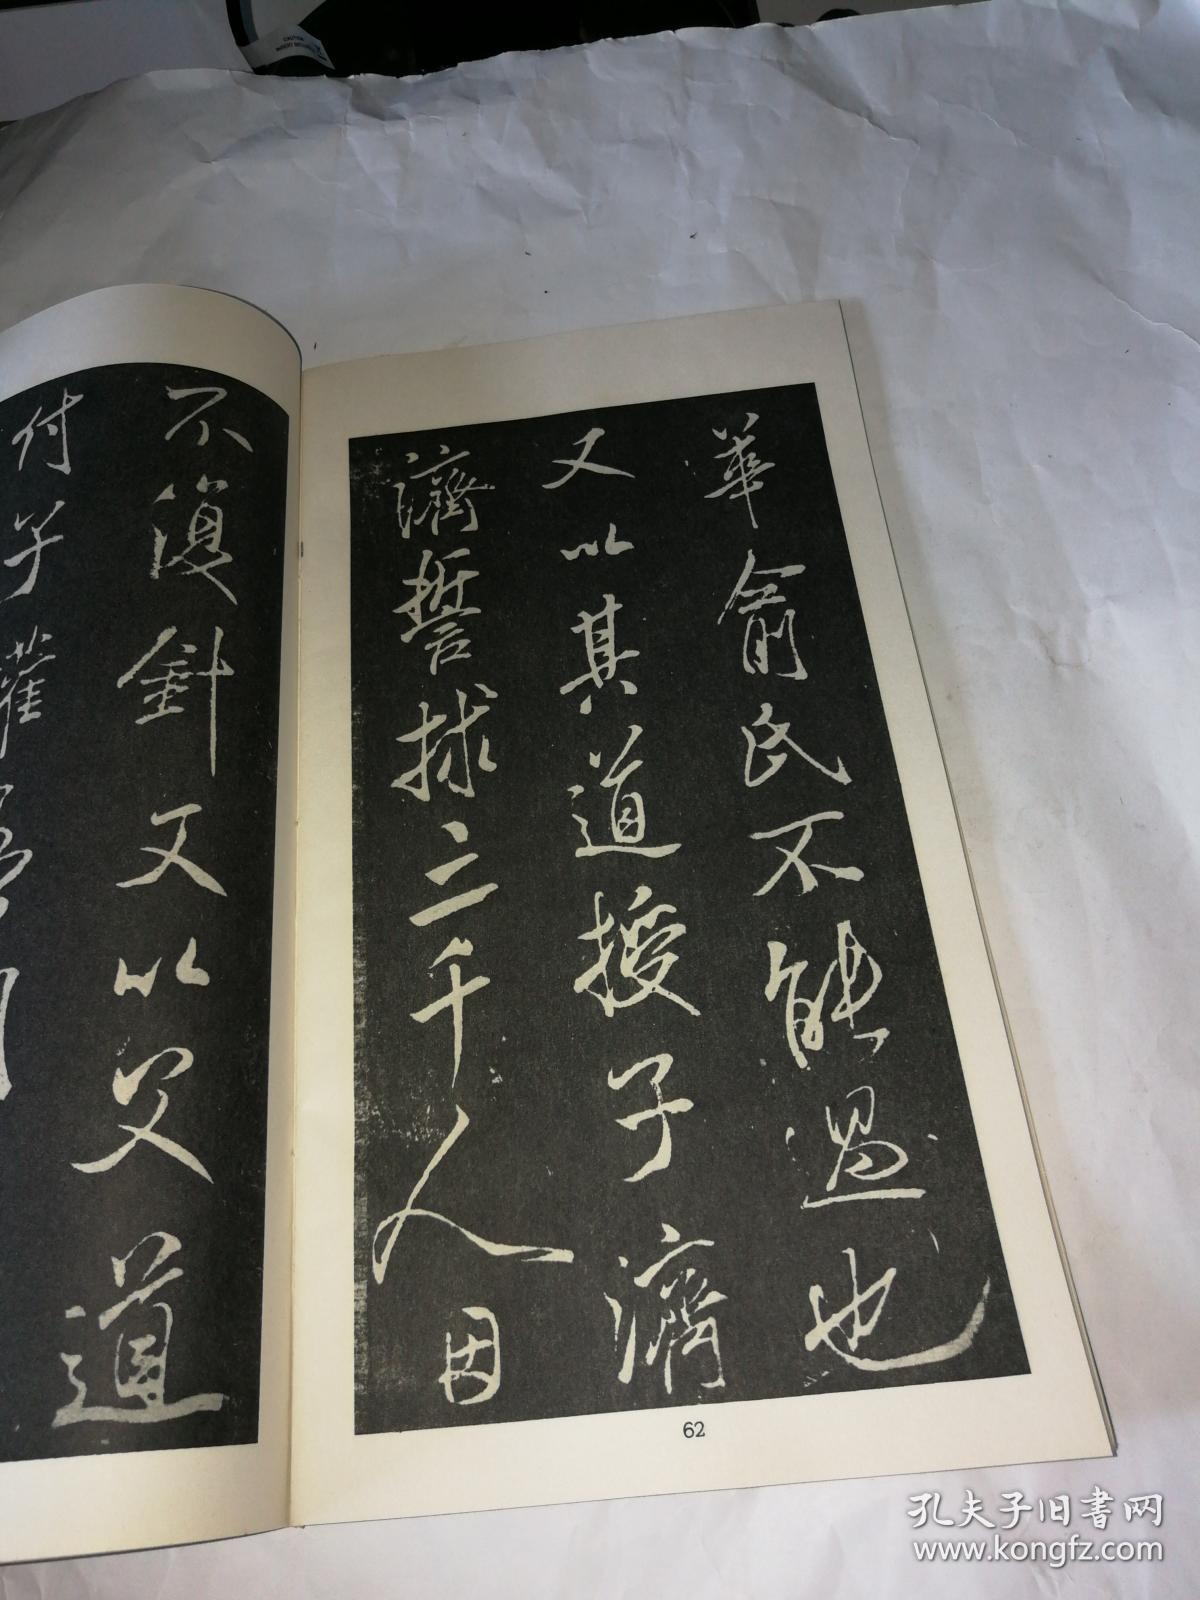 華俞氏不能過也
又以其道授子濟
濟誓捄三千人因
62
不復針又以父道
付子
孔夫子旧书网
www.kongfz.com
CAUTION